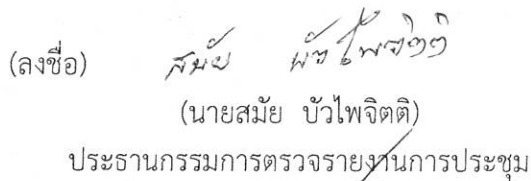 (ลงชื่อ) สมัย บัวไพจิตติ
(นายสมัย บัวไพจิตติ)
ประธานกรรมการตรวจรายงานการประชุม